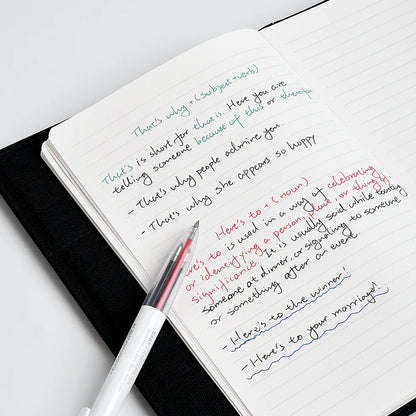 That's why + (subject + verb)
That's is short for that is. Here you are
telling someone because of this or therefore
- That's why people admire you.
- That's why she appears so happy
Here's to + (noun)
Here's to is used in a way of celebrating
or identifying a person, place, or thing's
significance. It is usually said while toasting
someone at dinner, or signaling to someone
or something after an event
- Here's to the winner!
- Here's to your marriage!